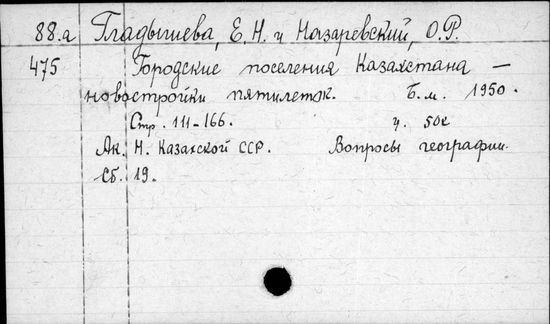 88.а Гладышева, Е.Н. и Назаревский, О.Р.
475 Городские поселения Казахстана —
новостройки пятилеток. Б.м. 1950.
Стр. 111-166. ц. 50к
Ак. Н. Казахской ССР. Вопросы географии.
Сб. 19.